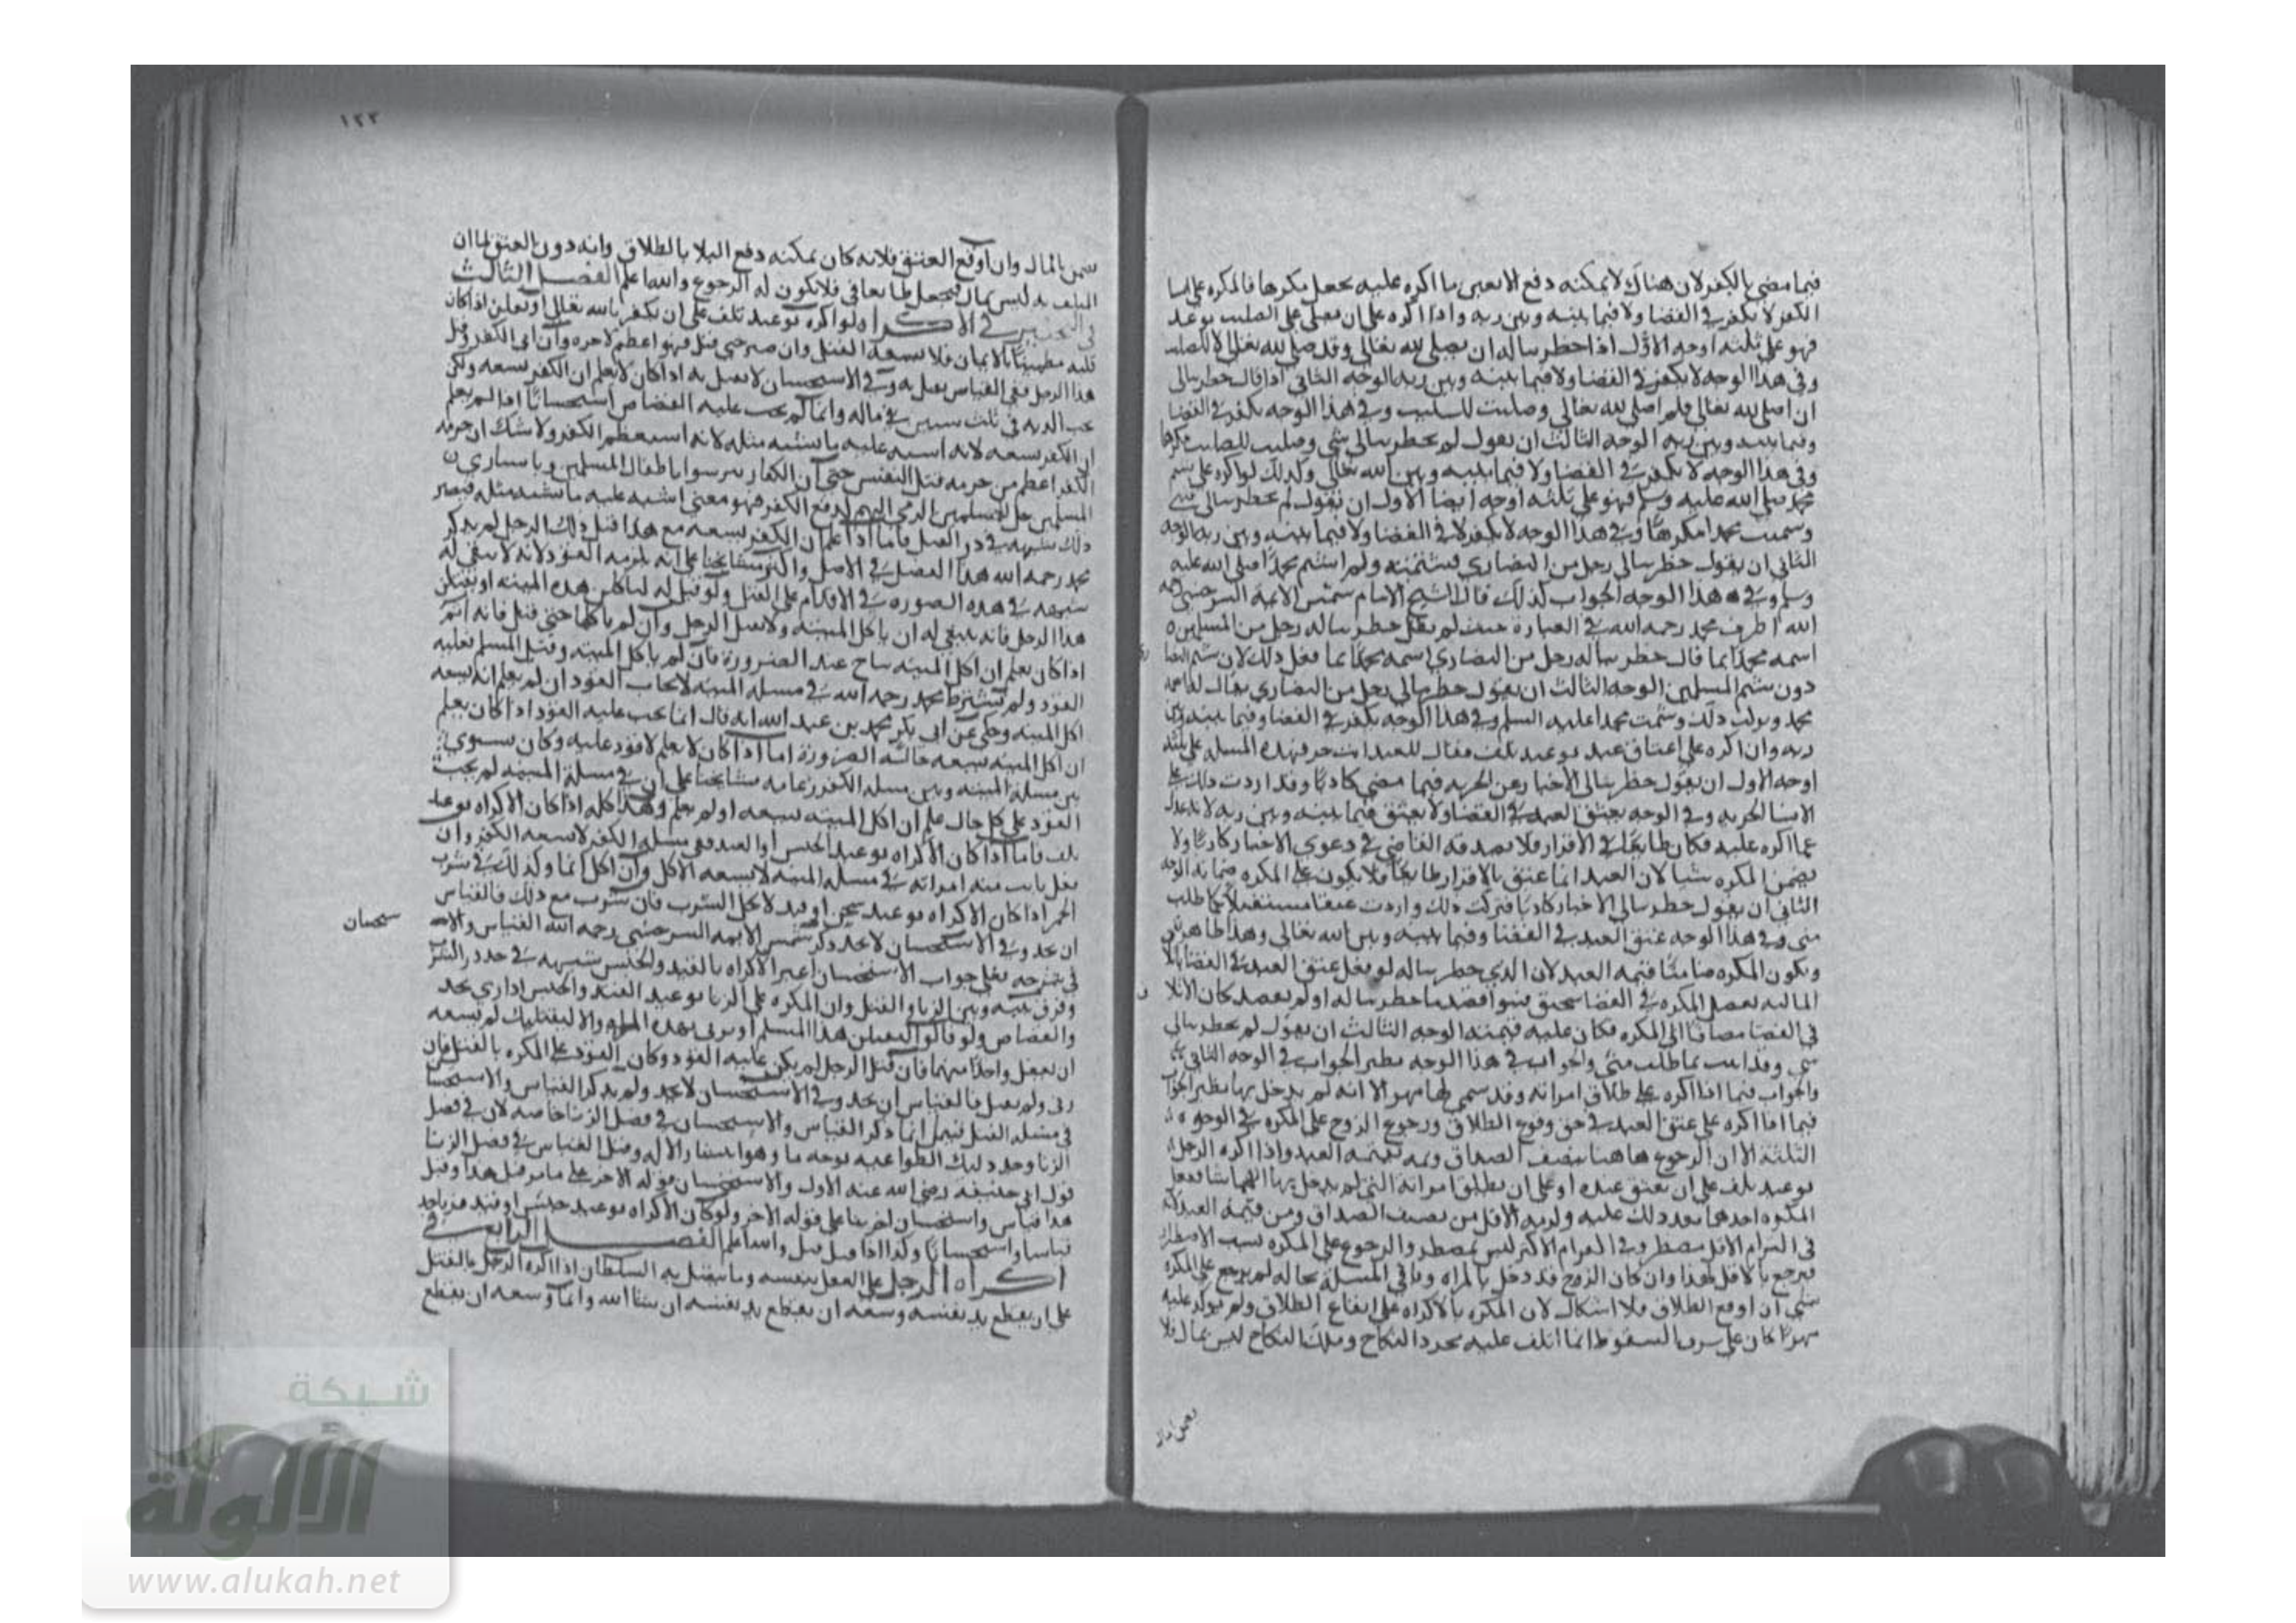 فيما مضى بالكفر لان هناك لا يمكنه دفع الا بعين ما اكره عليه يجعل مكرها فالمكره على انشا
الكفر لا يكفر في القضا ولا فيما بينه وبين ربه واذا اكره على ان يصلى على الصليب بوعيد
فهو على ثلثه اوجه الاول اذا خطر بباله ان يصلى لله تعالى وقد صلى لله تعالى لا للصليب
وفي هذا الوجه لا يكفر في القضا ولا فيما بينه وبين ربه الوجه الثانى اذا قال خطر ببالى
ان اصلى لله تعالى فلم اصلى لله تعالى وصليت للصليب وفي هذا الوجه يكفر في القضا
وفيما بينه وبين ربه الوجه الثالث ان يقول لم يخطر ببالى شى وصليت للصليب مكرها
وفي هذا الوجه لا يكفر في القضا ولا فيما بينه وبين الله تعالى وكذلك لو اكره على شتم
محمد صلى الله عليه وسلم فهو على ثلثه اوجه ايضا الاول ان يقول لم يخطر ببالى شى
وشتمت محمدا مكرها وفي هذا الوجه لا يكفر لا في القضا ولا فيما بينه وبين ربه الوجه
الثانى ان يقول خطر ببالى رجل من النصارى فشتمته ولم اشتم محمدا صلى الله عليه
وسلم وفي هذا الوجه الجواب كذلك قال الشيخ الامام شمس الايمة السرخسى رحمه
الله اطرف محمد رحمه الله في العبارة حيث لم يقل خطر بباله رجل من المسلمين
اسمه محمد انما قال خطر بباله رجل من النصارى اسمه محمد انما فعل ذلك لان شتم النصا
دون شتم المسلمين الوجه الثالث ان يقول خطر ببالى رجل من النصارى يقال له
محمد وتركت ذلك وشتمت محمدا عليه السلم وفي هذا الوجه يكفر في القضا وفيما بينه وبين
ربه وان اكره على اعتاق عبد بوعيد تلف فقال للعبد انت حر فهذه المسله على ثلثه
اوجه الاول ان يقول خطر ببالى الاخبار عن الحريه فيما مضى كاذبا وقد اردت ذلك لا
الانشا الحريه وفي الوجه يعتق العبد في القضا ولا يعتق فيما بينه وبين ربه لانه عدل
عما اكره عليه فكان طايعا في الاقرار فلا يصدقه القاضى في دعوى الاخبار كاذبا ولا
يضمن المكره شيا لان العبد انما عتق بالاقرار طايعا فلا يكون على المكره ضمانه الوجه
الثانى ان يقول خطر ببالى الاخبار كاذبا فتركت ذلك واردت عتقا مستقبلا كما طلب
منى وفي هذا الوجه عتق العبد في القضا وفيما بينه وبين الله تعالى وهذا ظاهر
ويكون المكره ضامنا قيمه العبد لان الذى خطر بباله لو فعل عتق العبد في القضا
في القضا مضافا الى المكره فكان عليه قيمته الوجه الثالث ان يقول لم يخطر ببالى
شى وقد اتيت بما طلب منى والجواب في هذا الوجه نظير الجواب في الوجه الثانى
والجواب فيما اذا اكره على طلاق امراته وقد سمى لها مهرا الا انه لم يدخل بها نظير الجواب
فيما اذا اكره على عتق العبد في حق وقوع الطلاق ورجوع الزوج على المكره في الوجوه
الثلثة الا ان الرجوع هاهنا بنصف الصداق وثمه بقيمه العبد واذا اكره الرجل
بوعيد تلف على ان يعتق عبده او على ان يطلق امراته التى لم يدخل بها ايهما شا ففعل
المكره احدهما بعد ذلك عليه ولزمه الاقل من نصف الصداق ومن قيمة العبد لانه
في التزام الاقل مضطر وفي التزام الاكثر ليس بمضطر والرجوع على المكره بسبب الاضطرار
فيرجع بالاقل لهذا وان كان الزوج قد دخل بالمراه وباقى المسلة بحاله لم يرجع على المكره
شى ان اوقع الطلاق فلا اشكال لان المكره بالاكراه على ايقاع الطلاق ولم يوكد عليه
مهرا كان على شرف السقوط انما اتلف عليه مجرد النكاح وملك النكاح ليس بمال فلا
يضمن بالمال
١٢٣
يضمن بالمال وان اوقع العتق فلانه كان يمكنه دفع البلا بالطلاق وانه دون العتق لما ان
المتلف به ليس بمال فيجعل طايعا في فلا يكون له الرجوع والله اعلم الفصل الثالث
في الاكراه ولو اكره بوعيد تلف على ان يكفر بالله تعالى او يقتل اذا كان
قلبه مطمينا بالايمان فلا يسعه القتل وان صبر حتى قتل فهو اعظم لاجره وان ابى الكفر وقتل
هذا الرجل ففى القياس يقتل به وفي الاستحسان لا يقتل به اذا كان لا يعلم ان الكفر يسعه ولكن
يجب الديه في ثلث سنين في ماله وانما لم يجب عليه القصاص استحسانا اذا لم يعلم
ان الكفر يسعه لانه اشبه عليه ما يشبه مثله لانه استعظم الكفر ولا شك ان حرمه
الكفر اعظم من حرمه قتل النفس حتى ان الكفار تترسوا باطفال المسلمين وباسارى
المسلمين حل للمسلمين الرمى اليهم لدفع الكفر فهو معنى اشبه عليه ما يشبه مثله فيصير
ذلك شبهه في در القتل فاما اذا علم ان الكفر يسعه مع هذا قتل ذلك الرجل لم يذكر
محمد رحمه الله هذا الفصل في الاصل واكثر مشايخنا على انه يلزمه القود لانه لا يبقى له
شبهه في هذه الصوره في الاقدام على القتل ولو قيل له لتاكلن هذه الميته او تقتلن
هذا الرجل فانه ينبغى له ان ياكل الميته ولا يقتل الرجل وان لم ياكلها حتى قتل فانه اثم
اذا كان يعلم ان اكل الميته يباح عند الضرورة فان لم ياكل الميته وقتل المسلم فعليه
القود ولم يشترط محمد رحمه الله في مسلة الميته لايجاب القود ان لم يعلم انه يسعه
اكل الميته وحكى عن ابى بكر محمد بن عبد الله انه قال انما يجب عليه القود اذا كان يعلم
ان اكل الميته يسعه حالة الضرورة اما اذا كان لا يعلم لا قود عليه وكان يسوى
بين مسلة الميته وبين مسلة الكفر وعامه مشايخنا على ان في مسلة الميته لم يجب
القود على كل حال علم ان اكل الميته يسعه او لم يعلم وهذا كله اذا كان الاكراه بوعيد
تلف فاما اذا كان الاكراه بوعيد الحبس او القيد ففى مسلة الكفر لا يسعه الكفر وان
فعل بانت منه امراته في مسلة الميته لا يسعه الاكل وان اكل اثما وكذلك في شرب
الخمر اذا كان الاكراه بوعيد سجن او قيد لا يحل الشرب فان شرب مع ذلك فالقياس
ان يحد وفي الاستحسان لا يحد وذكر شمس الايمه السرخسى رحمه الله القياس والا
ستحسان
في شرحه فعلى جواب الاستحسان اعتبر الاكراه بالقيد والحبس شبهه في حد در الشرب
وفرق بينه وبين الزنا والقتل وان المكره على الزنا بوعيد القيد والحبس اذا زنى يحد
ان يفعل واحدا منهما فان قتل الرجل لم يكن عليه القود وكان القود على المكره بالقتل فان
زنى ولم يقتل فالقياس ان يحد وفي الاستحسان لا يحد ولم يذكر القياس والاستحسا
في مسله القتل فقيل انما ذكر القياس والاستحسان في فصل الزنا خاصه لان في فصل
قول ابى حنيفه رضى الله عنه الاول والاستحسان قوله الاخر على ما مر قبل هذا وقيل
هذا قياس واستحسان لخرجا على قوله الاخر ولو كان الاكراه بوعيد حبس او قيد
قياسا واستحسانا وكذا اذا قتل قتل والله اعلم الفصل الرابع في
اكراه الرجل على الفعل بنفسه وما يتصل به السلطان اذا اكره الرجل بالقتل
على ان يقطع يد نفسه وسعه ان يقطع يد نفسه ان شا الله وانما وسعه ان يقطع
شبكة
الألوكة
www.alukah.net